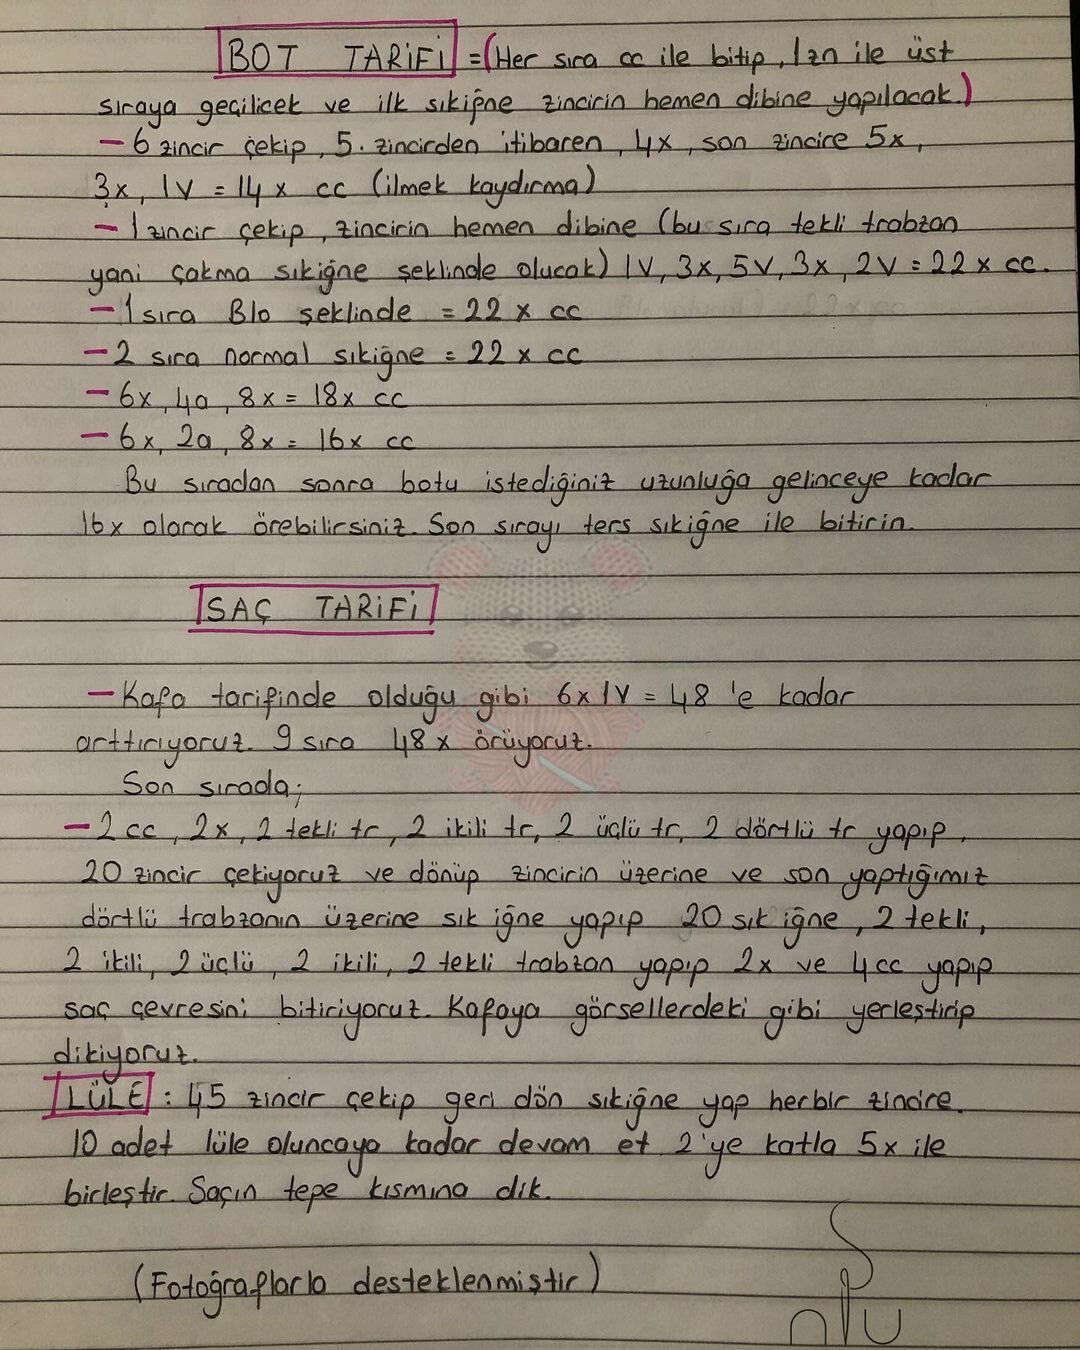 BOT TARİFİ =(Her sıra cc ile bitip, 1zn ile üst
sıraya geçilicek ve ilk sıkiğne zincirin hemen dibine yapılacak.)
- 6 zincir çekip, 5. zincirden itibaren, 4x, son zincire 5x,
3x, 1V = 14x cc (ilmek kaydırma)
- 1 zincir çekip, zincirin hemen dibine (bu sıra tekli trabzan
yani çakma sıkiğne şeklinde olucak) 1V, 3x, 5V, 3x, 2V = 22x cc.
- 1 sıra Blo şeklinde = 22 x cc
- 2 sıra normal sıkiğne = 22 x cc
- 6x, 4a, 8x = 18x cc
- 6x, 2a, 8x = 16x cc
Bu sıradan sonra botu istediğiniz uzunluğa gelinceye kadar
16x olarak örebilirsiniz. Son sırayı ters sıkiğne ile bitirin.
SAÇ TARİFİ
- Kafa tarifinde olduğu gibi 6x1V = 48'e kadar
arttırıyoruz. 9 sıra 48x örüyoruz.
Son sırada;
- 2 cc, 2x, 2 tekli tr, 2 ikili tr, 2 üçlü tr, 2 dörtlü tr yapıp,
20 zincir çekiyoruz ve dönüp zincirin üzerine ve son yaptığımız
dörtlü trabzanın üzerine sık iğne yapıp 20 sık iğne, 2 tekli,
2 ikili, 2 üçlü, 2 ikili, 2 tekli trabzan yapıp 2x ve 4cc yapıp
saç çevresini bitiriyoruz. Kafaya görsellerdeki gibi yerleştirip
dikiyoruz.
LÜLE : 45 zincir çekip geri dön sıkiğne yap herbir zincire.
10 adet lüle oluncaya kadar devam et 2'ye katla 5x ile
birleştir. Saçın tepe kısmına dik.
(Fotoğraflarla desteklenmiştir)